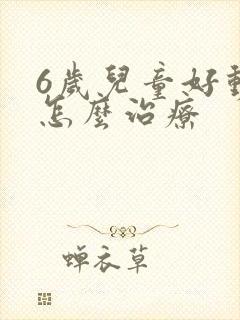 6歲兒童好動
怎麼治療
蝉衣草